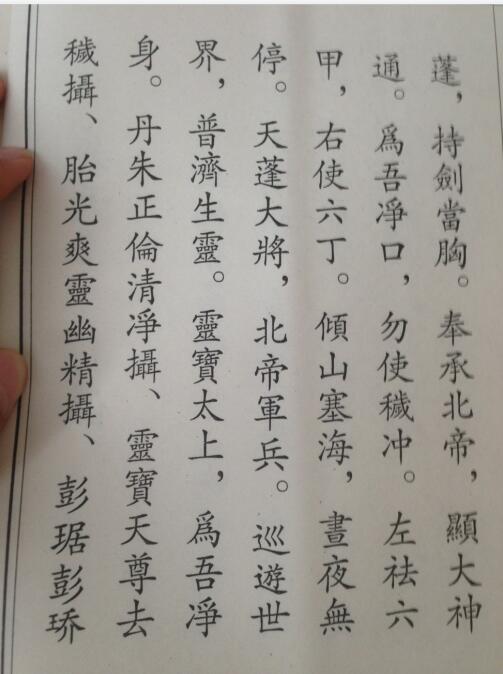 蓬，持劍當胸。奉承北帝，顯大神
通。爲吾淨口，勿使穢冲。左祛六
甲，右使六丁。傾山塞海，晝夜無
停。天蓬大將，北帝軍兵。巡遊世
界，普濟生靈。靈寶太上，爲吾淨
身。丹朱正倫清淨攝、靈寶天尊去
穢攝、胎光爽靈幽精攝、彭琚彭琈